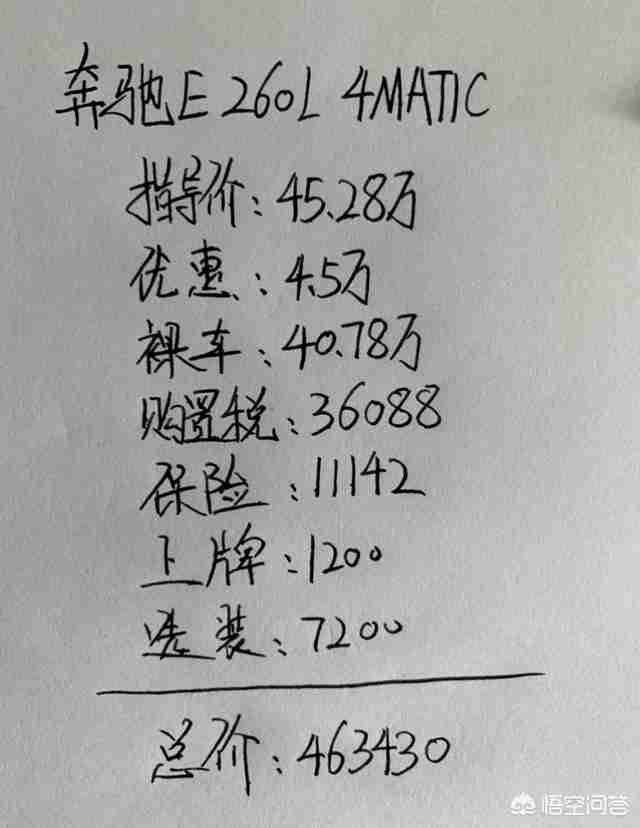 奔驰E 260L 4MATIC
指导价:45.28万
优惠:4.5万
裸车:40.78万
购置税:36088
保险:11142
上牌:1200
选装:7200
总价:463430
悟空问答